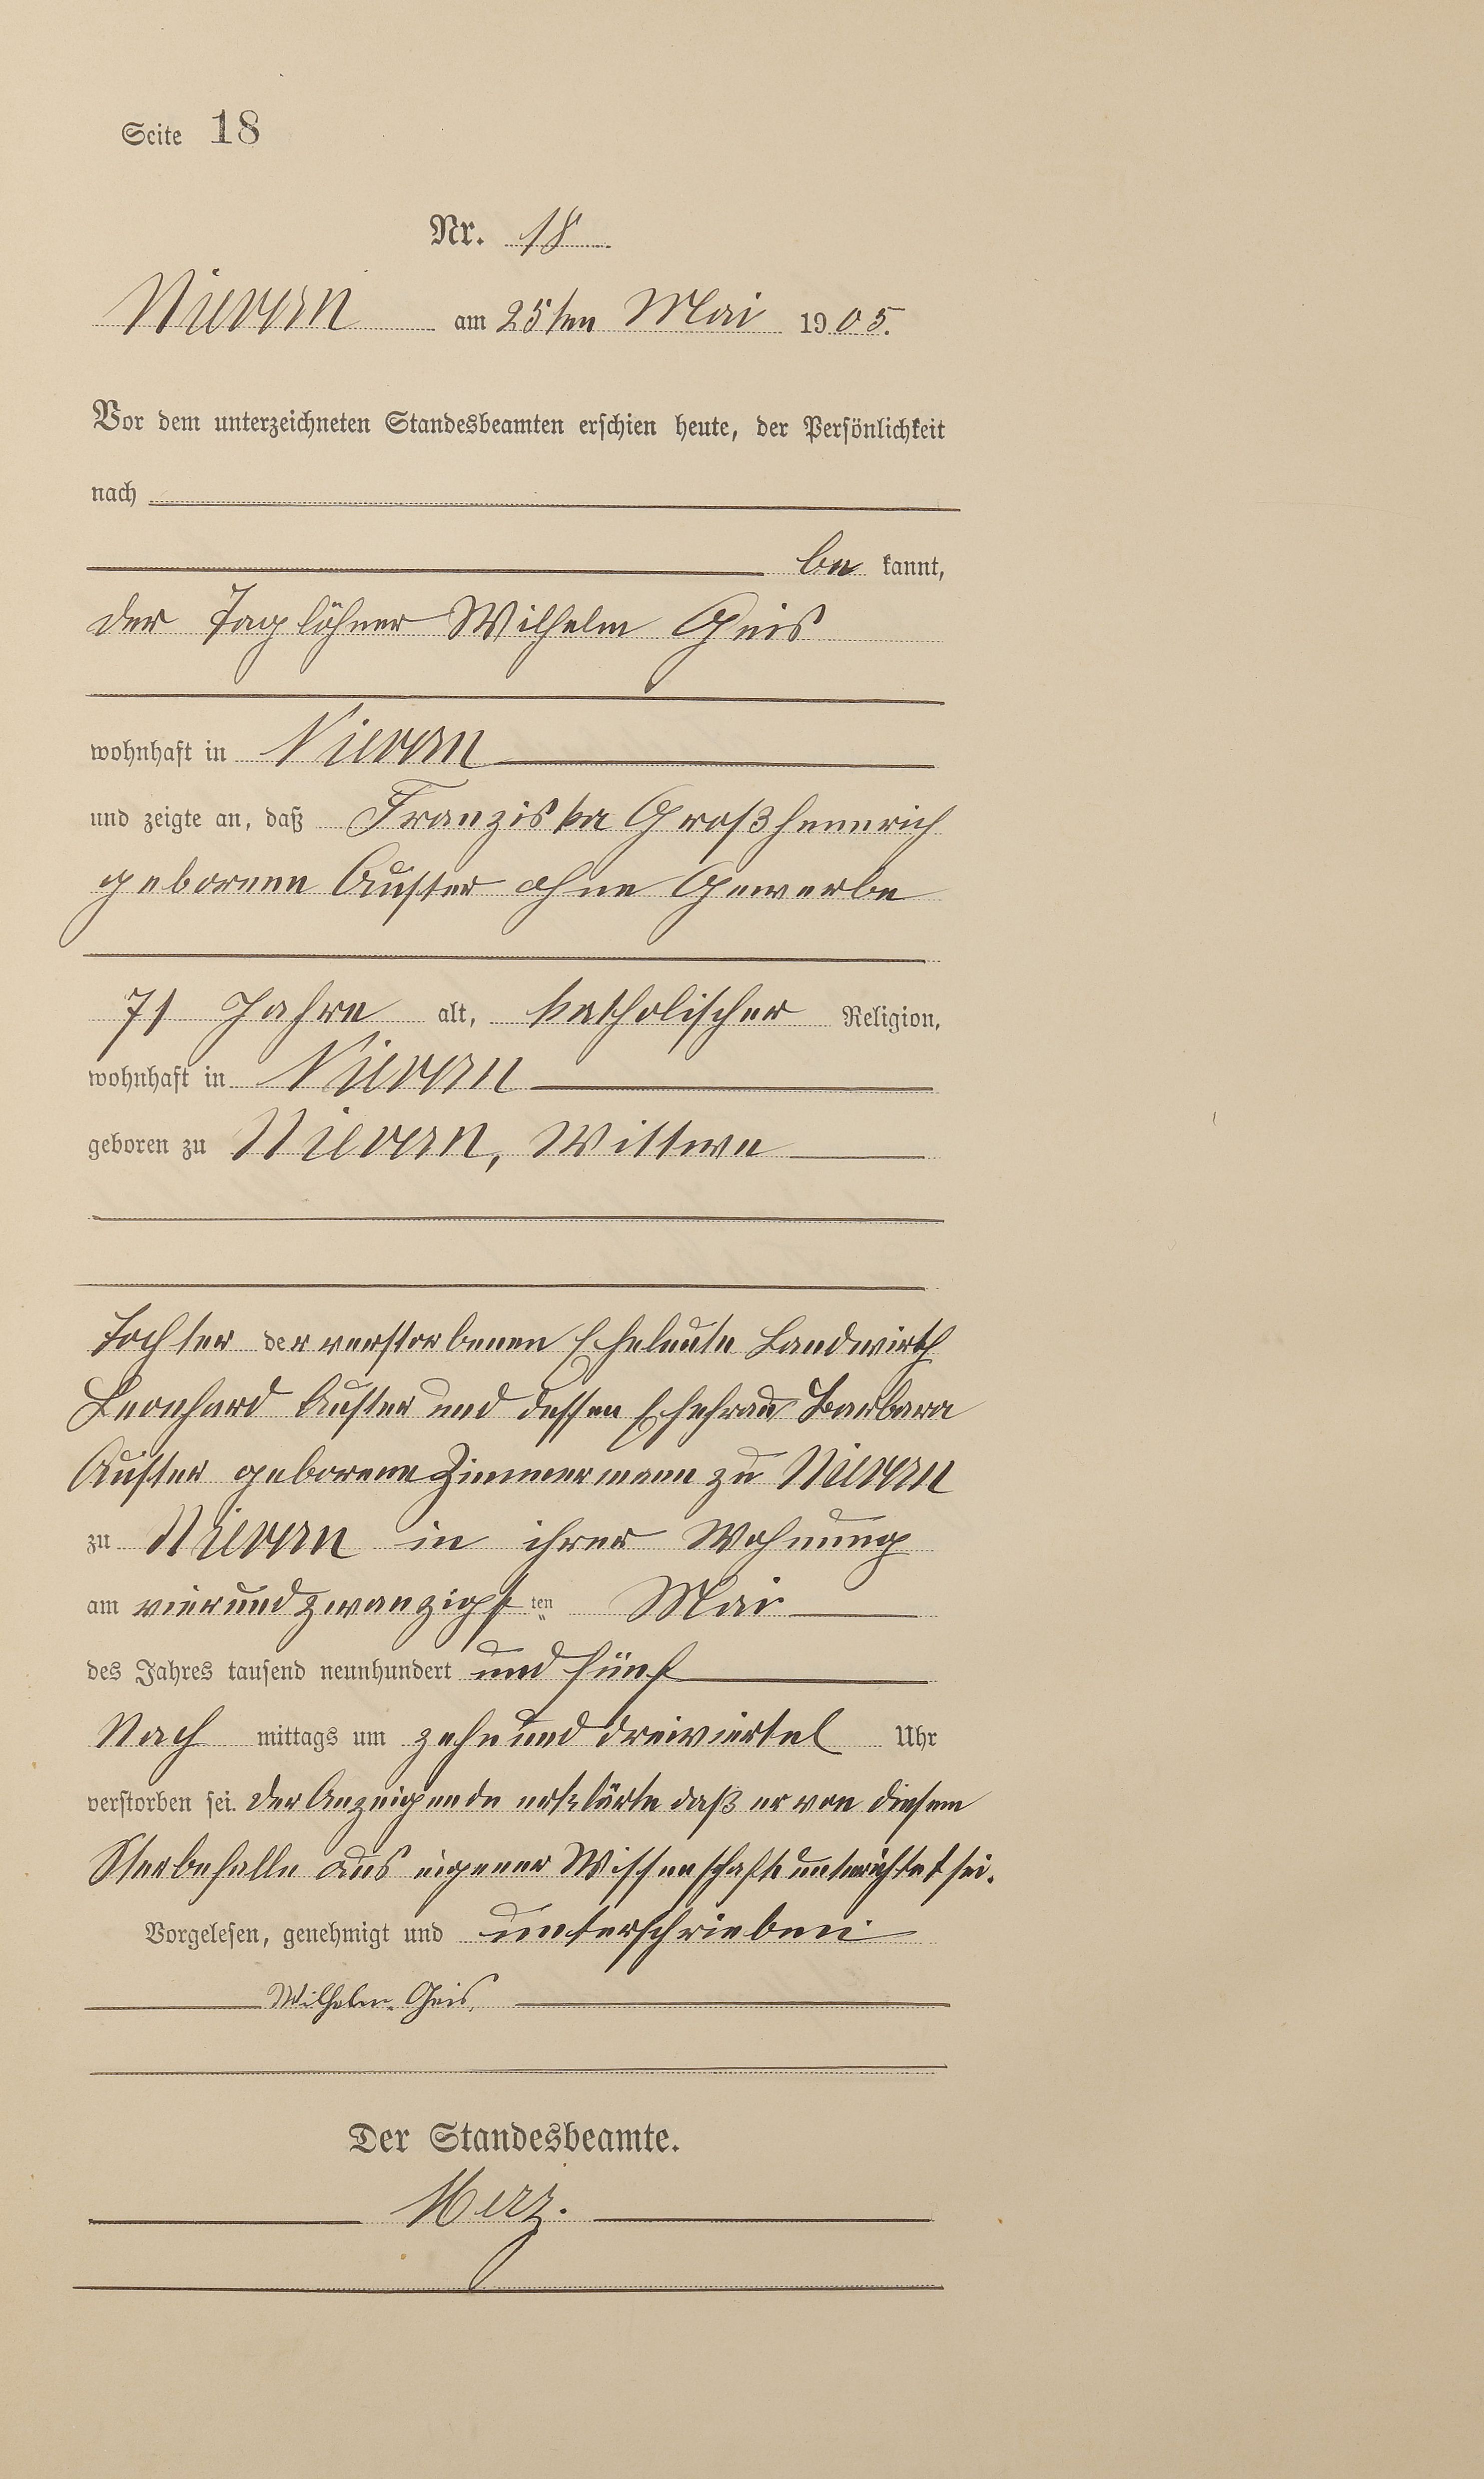 Seite 18
Nr. 18
Nievern am 25ten Mai 1905.
Vor dem unterzeichneten Standesbeamten erschien heute, der Persönlichkeit
nach
be kannt,
der Taglöhner Wilhelm Geis
wohnhaft in Nievern
und zeigte an, daß Franziska Großhennrich
geborene Auster ohne Gewerbe
71 Jahre alt, katholischer Religion,
wohnhaft in Nievern
geboren zu Nievern, Wittwe
Tochter der verstorbenen Eheleute Landwirth
Leonhard Auster und dessen Ehefrau Barbara
Auster geborene Zimmermann zu Nievern
zu Nievern in ihrer Wohnung
am vierundzwanzigst ten Mai
des Jahres tausend neunhundert und fünf
Nach mittags um zehn und dreiviertel Uhr
verstorben sei. Der Anzeigende erklärte daß er von diesem
Sterbefalle aus eigener Wissenschaft unterrichtet sei.
Vorgelesen, genehmigt und unterschrieben
Wilhelm Geis.
Der Standesbeamte.
Merz.